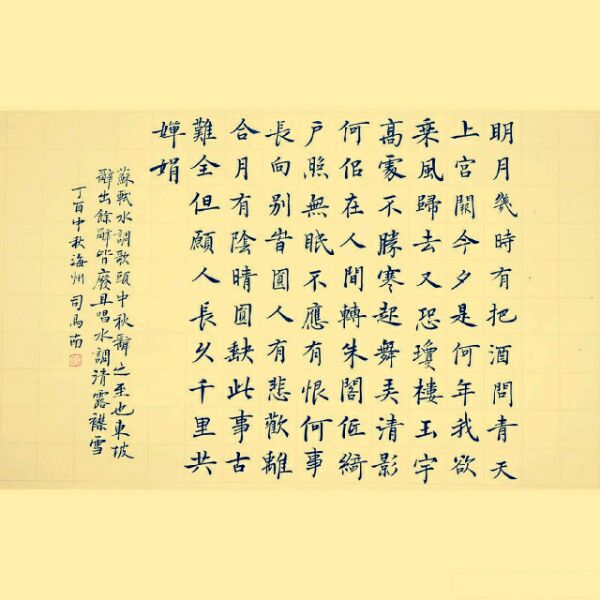 明月幾時有把酒問青天
上宮闕今夕是何年我欲
乘風歸去又恐瓊樓玉宇
高處不勝寒起舞弄清影
何佀在人間轉朱閣低綺
戶照無眠不應有恨何事
長向別旹圓人有悲歡離
合月有陰晴圓缺此事古
難全但願人長久千里共
嬋娟
蘇軾水調歌頭中秋辭之至也東坡
辭出餘辭皆廢且唱水調清露襟雪
丁酉中秋海州司馬南